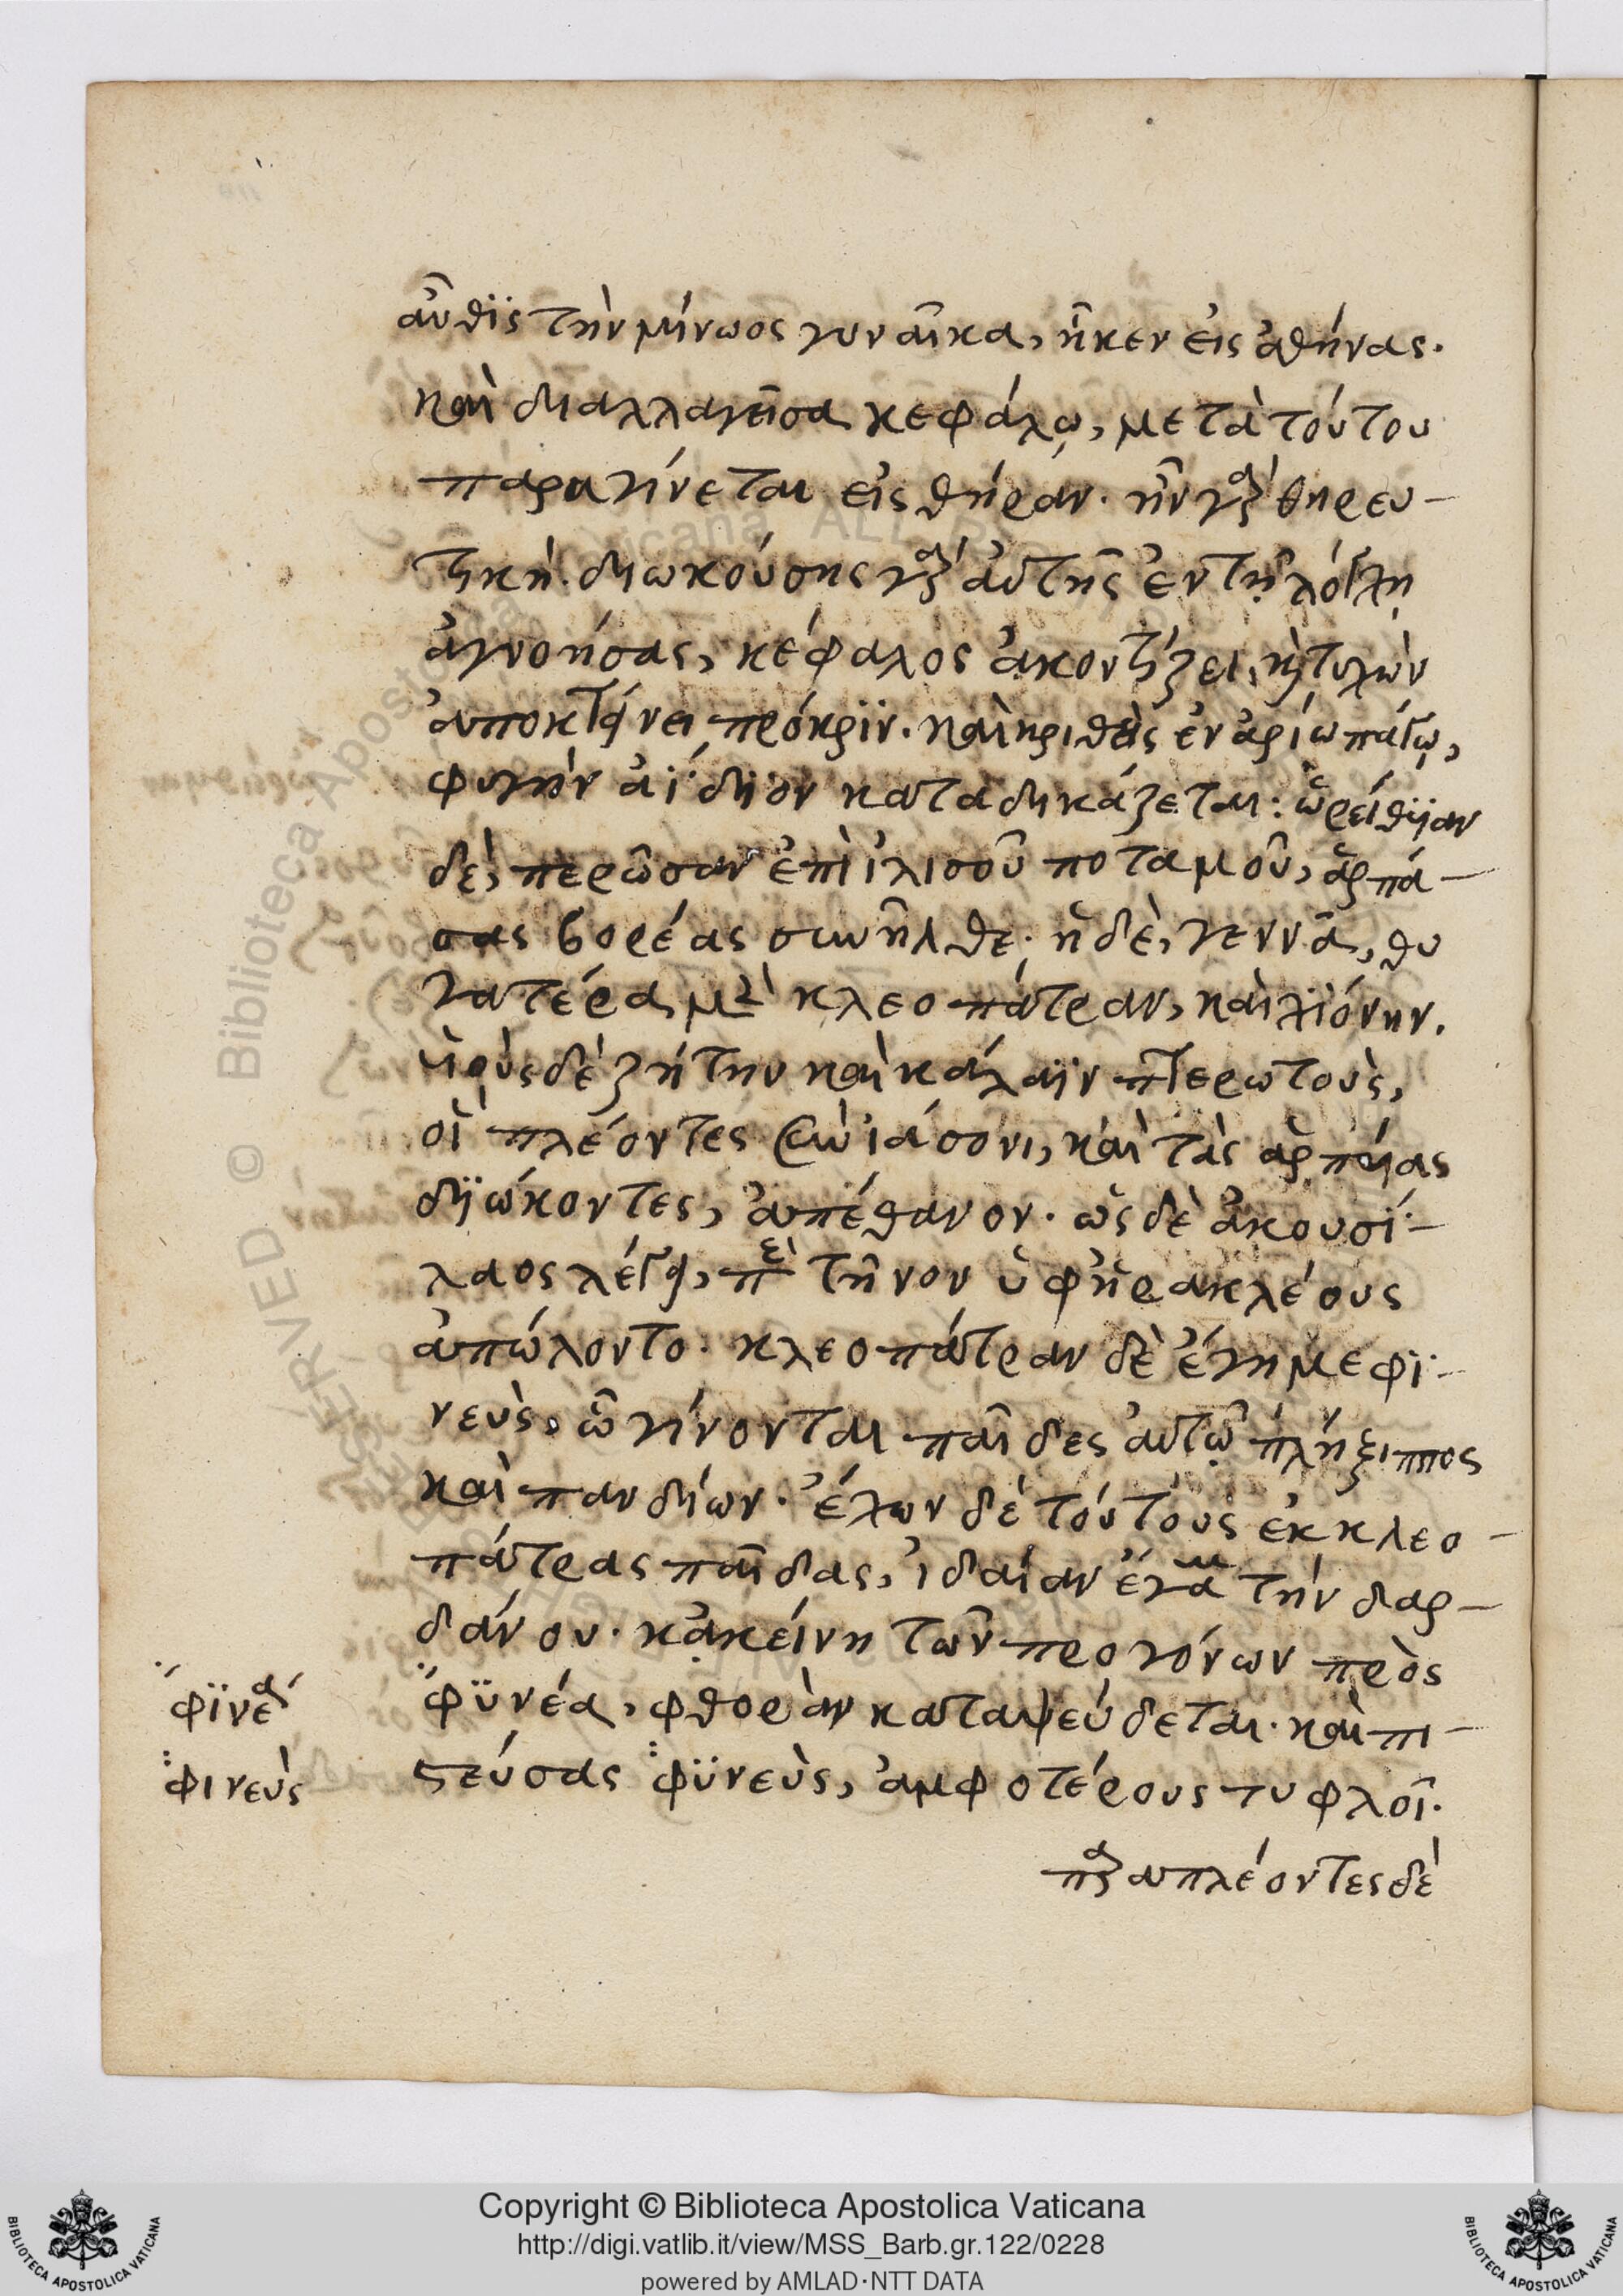 αὖθϊς τὴν μίνωος γυναῖκα, ἧκεν εἰς ἀθήνας.
καὶ διαλλαγεῖσα κεφάλῳ, μετὰ τούτου
παραγίνεται εἰς θήραν. ἦν γὰρ θηρευ-
τικὴ. διωκούσης γὰρ αὐτῆς ἐν τῇ λόχμῃ
ἀγνοήσας, κέφαλος ἀκοντίζει, καὶ τυχὼν
ἀποκτείνει πρόκριν. καὶ κριθεὶς ἐν ἀρίω πάγῳ,
φυγὴν ἀΐδιον καταδικάζεται: ὠρείθυιαν
δὲ, περῶσαν ἐπὶ ἰλισοῦ ποταμοῦ, ἁρπά-
σας βορέας συνῆλθε. ἡ δὲ, γεννᾶ, θυ
γατέρας μὲν κλεοπάτραν, καὶ χϊόνην.
υἱοὺς δὲ ζήτην καὶ κάλαϊν πτερωτοὺς,
οἳ πλέοντες σὺν ἰάσονι, καὶ τὰς ἁρπυίας
διώκοντες, ἀπέθανον. ὡς δὲ ἀκουσί-
λαος λέγει, περὶ τῆνον ὑφ ἡρακλέους
ἀπώλοντο. κλεοπάτραν δὲ ἔγημε φϊ-
νεὺς, ᾧ γίνονται παῖδες αὐτῷ πλήξιππος
καὶ πανδίων. ἔχων δὲ τούτους ἐκ κλεο-
πάτρας παῖδας, ἰδαίαν ἔγαμε τὴν δαρ-
δάνου. κἀκείνη τῶν προγόνων πρὸς
φϋνέα, φθορὰν καταψεύδεται. καὶ πι-
στεύσας φϋνεὺς, ἀμφοτέρους τυφλοῖ.
παραπλέοντες δὲ
φϊνέα
φινεὺς
Copyright © Biblioteca Apostolica Vaticana
http://digi.vatlib.it/view/MSS_Barb.gr.122/0228
powered by AMLAD·NTT DATA
BIBLIOTECA APOSTOLICA VATICANA
BIBLIOTECA APOSTOLICA VATICANA